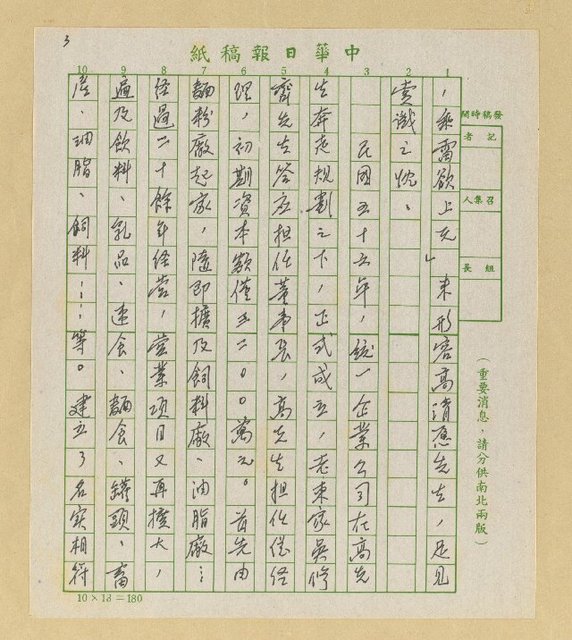 3
中華日報稿紙
發稿時間
記者
召集人
組長
（重要消息，請分供南北兩版）
1 2 3 4 5 6 7 8 9 10
，乘雷欲上天」來形容高清愿先生，足見
賞識之忱。
民國五十六年，統一企業公司在高先
生奔走規劃之下，正式成立，老東家吳修
齊先生答應担任董事長，高先生担任總經
理，初期資本額僅三二〇〇萬元。首先由
麵粉廠起家，隨即擴及飼料廠、油脂廠…
經過二十餘年經營，營業項目又再擴大，
遍及飲料、乳品、速食、麵食、罐頭、畜
產、油脂、飼料……等。建立了名實相符
10×18=180